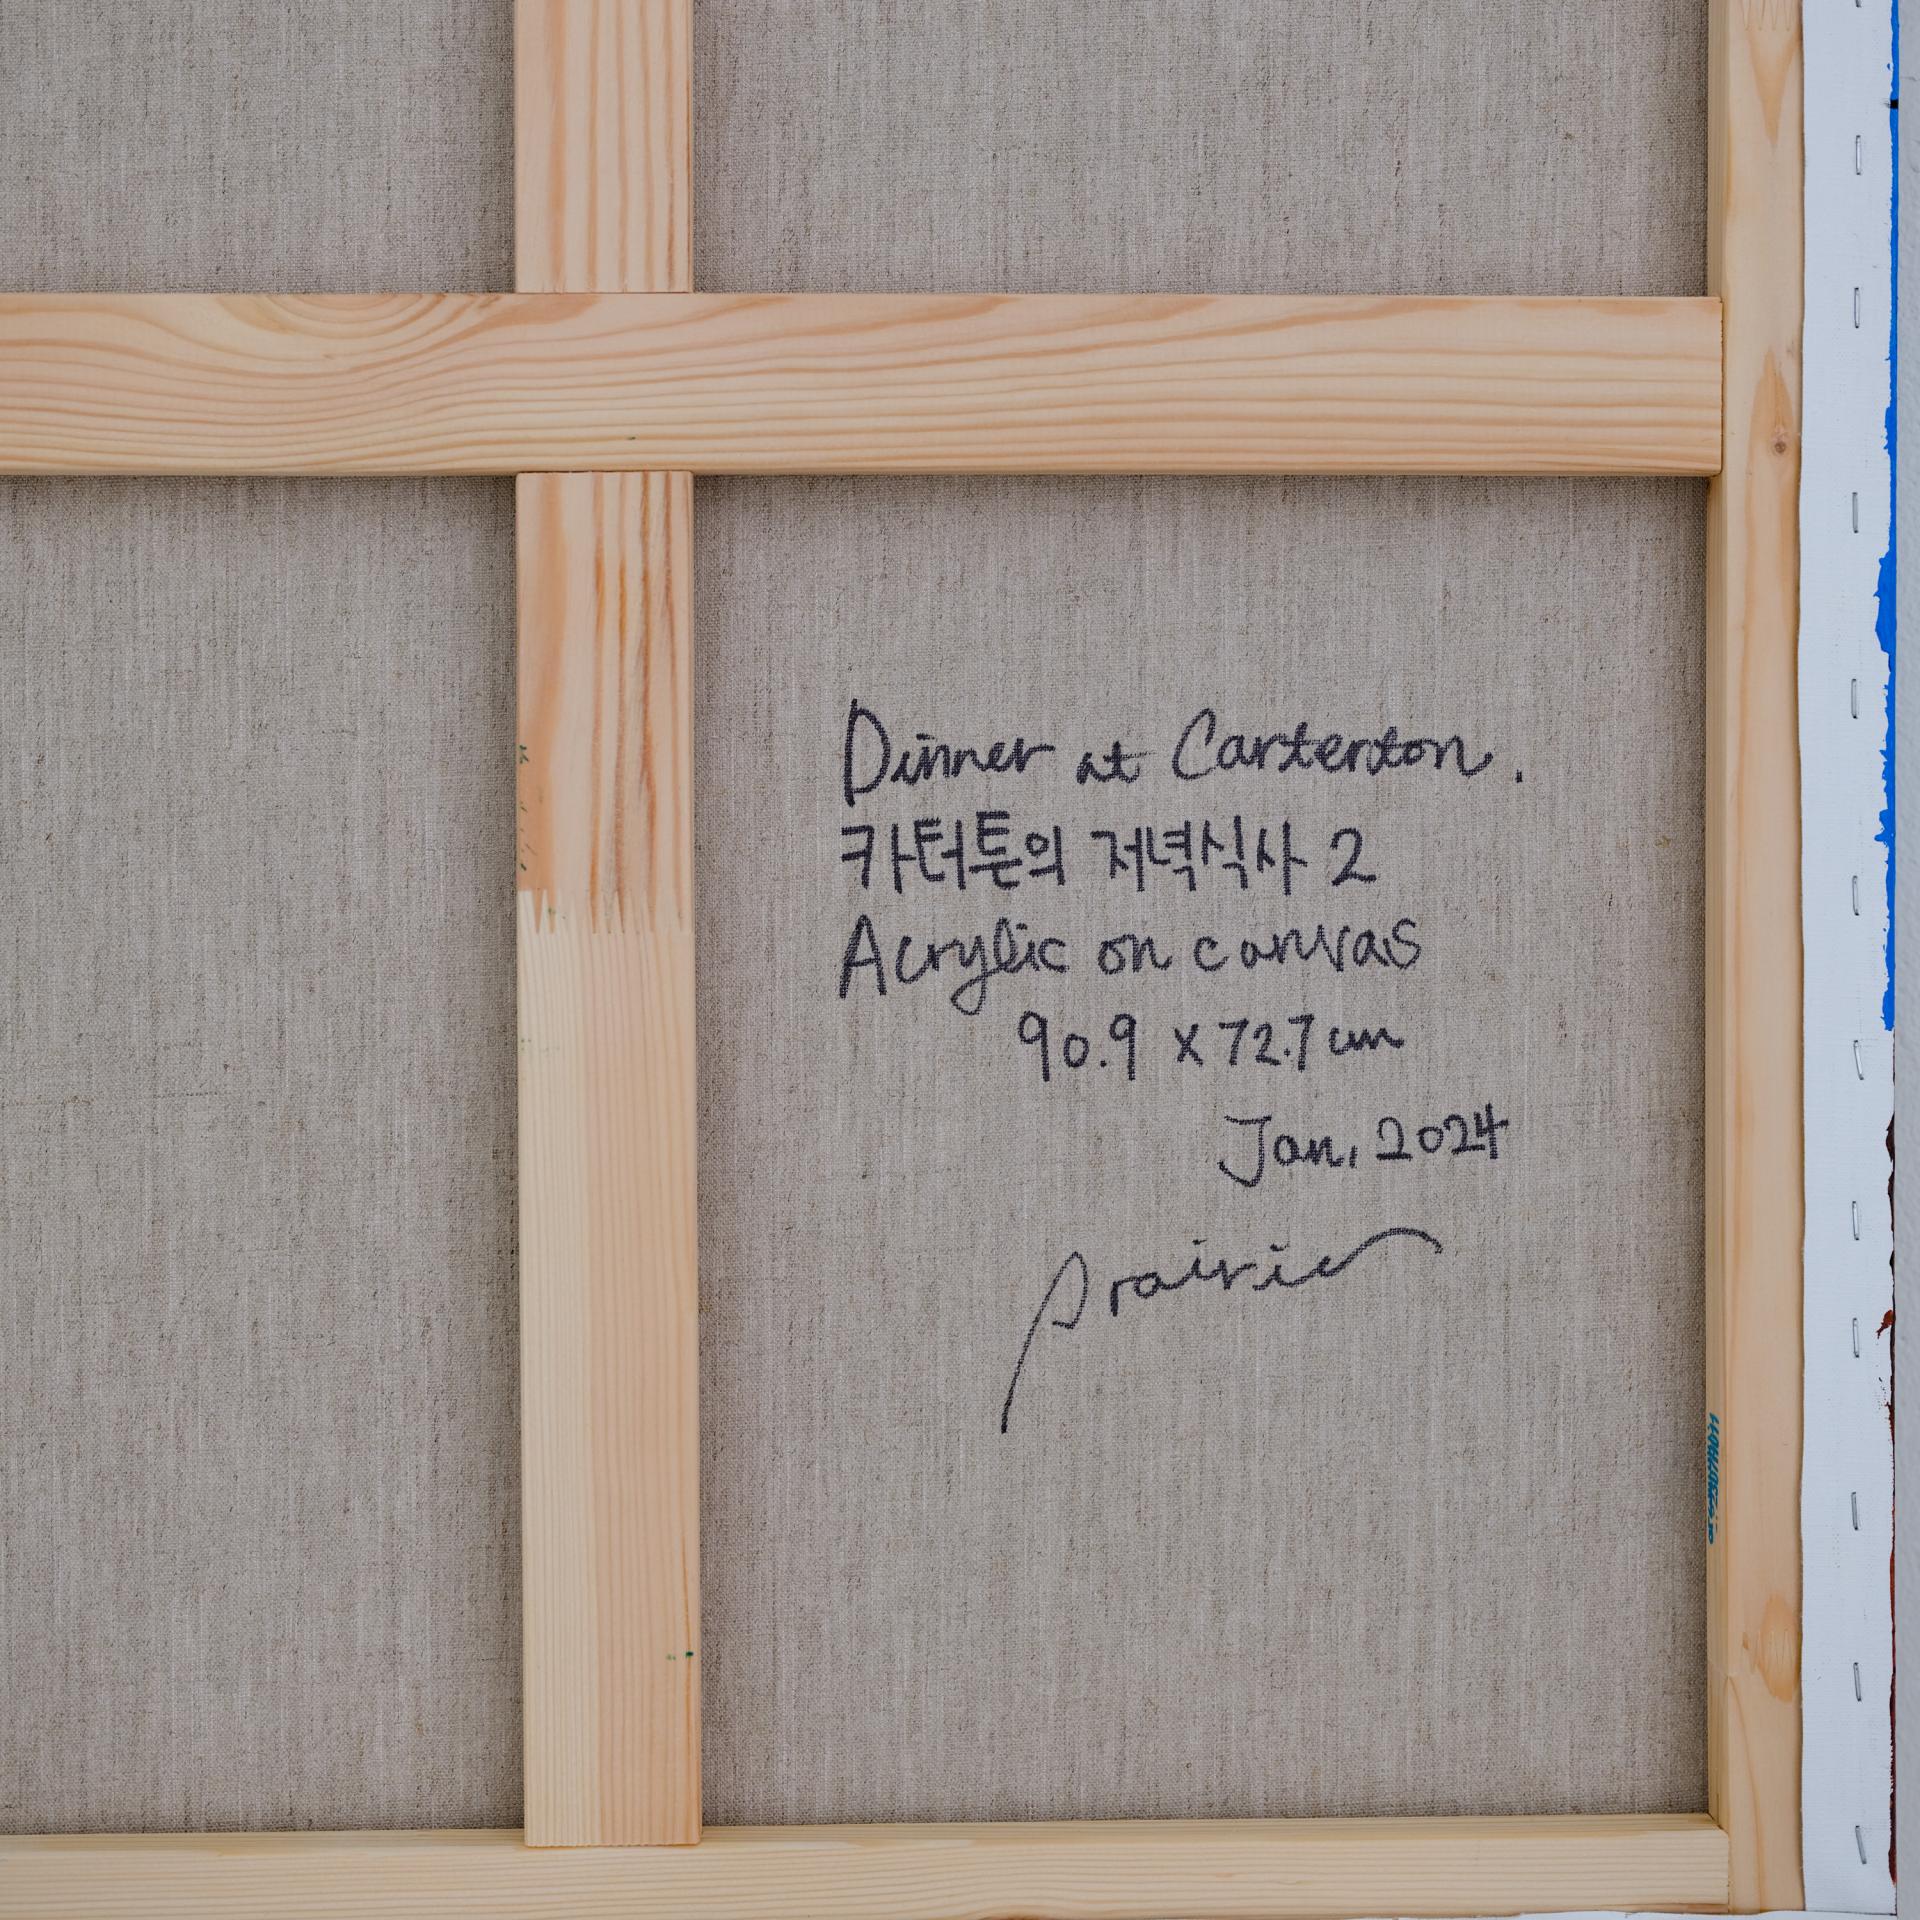 Dinner at Carterton.
카터튼의 저녁식사 2
Acrylic on canvas
90.9 x 72.7 cm
Jan, 2024
Prairie